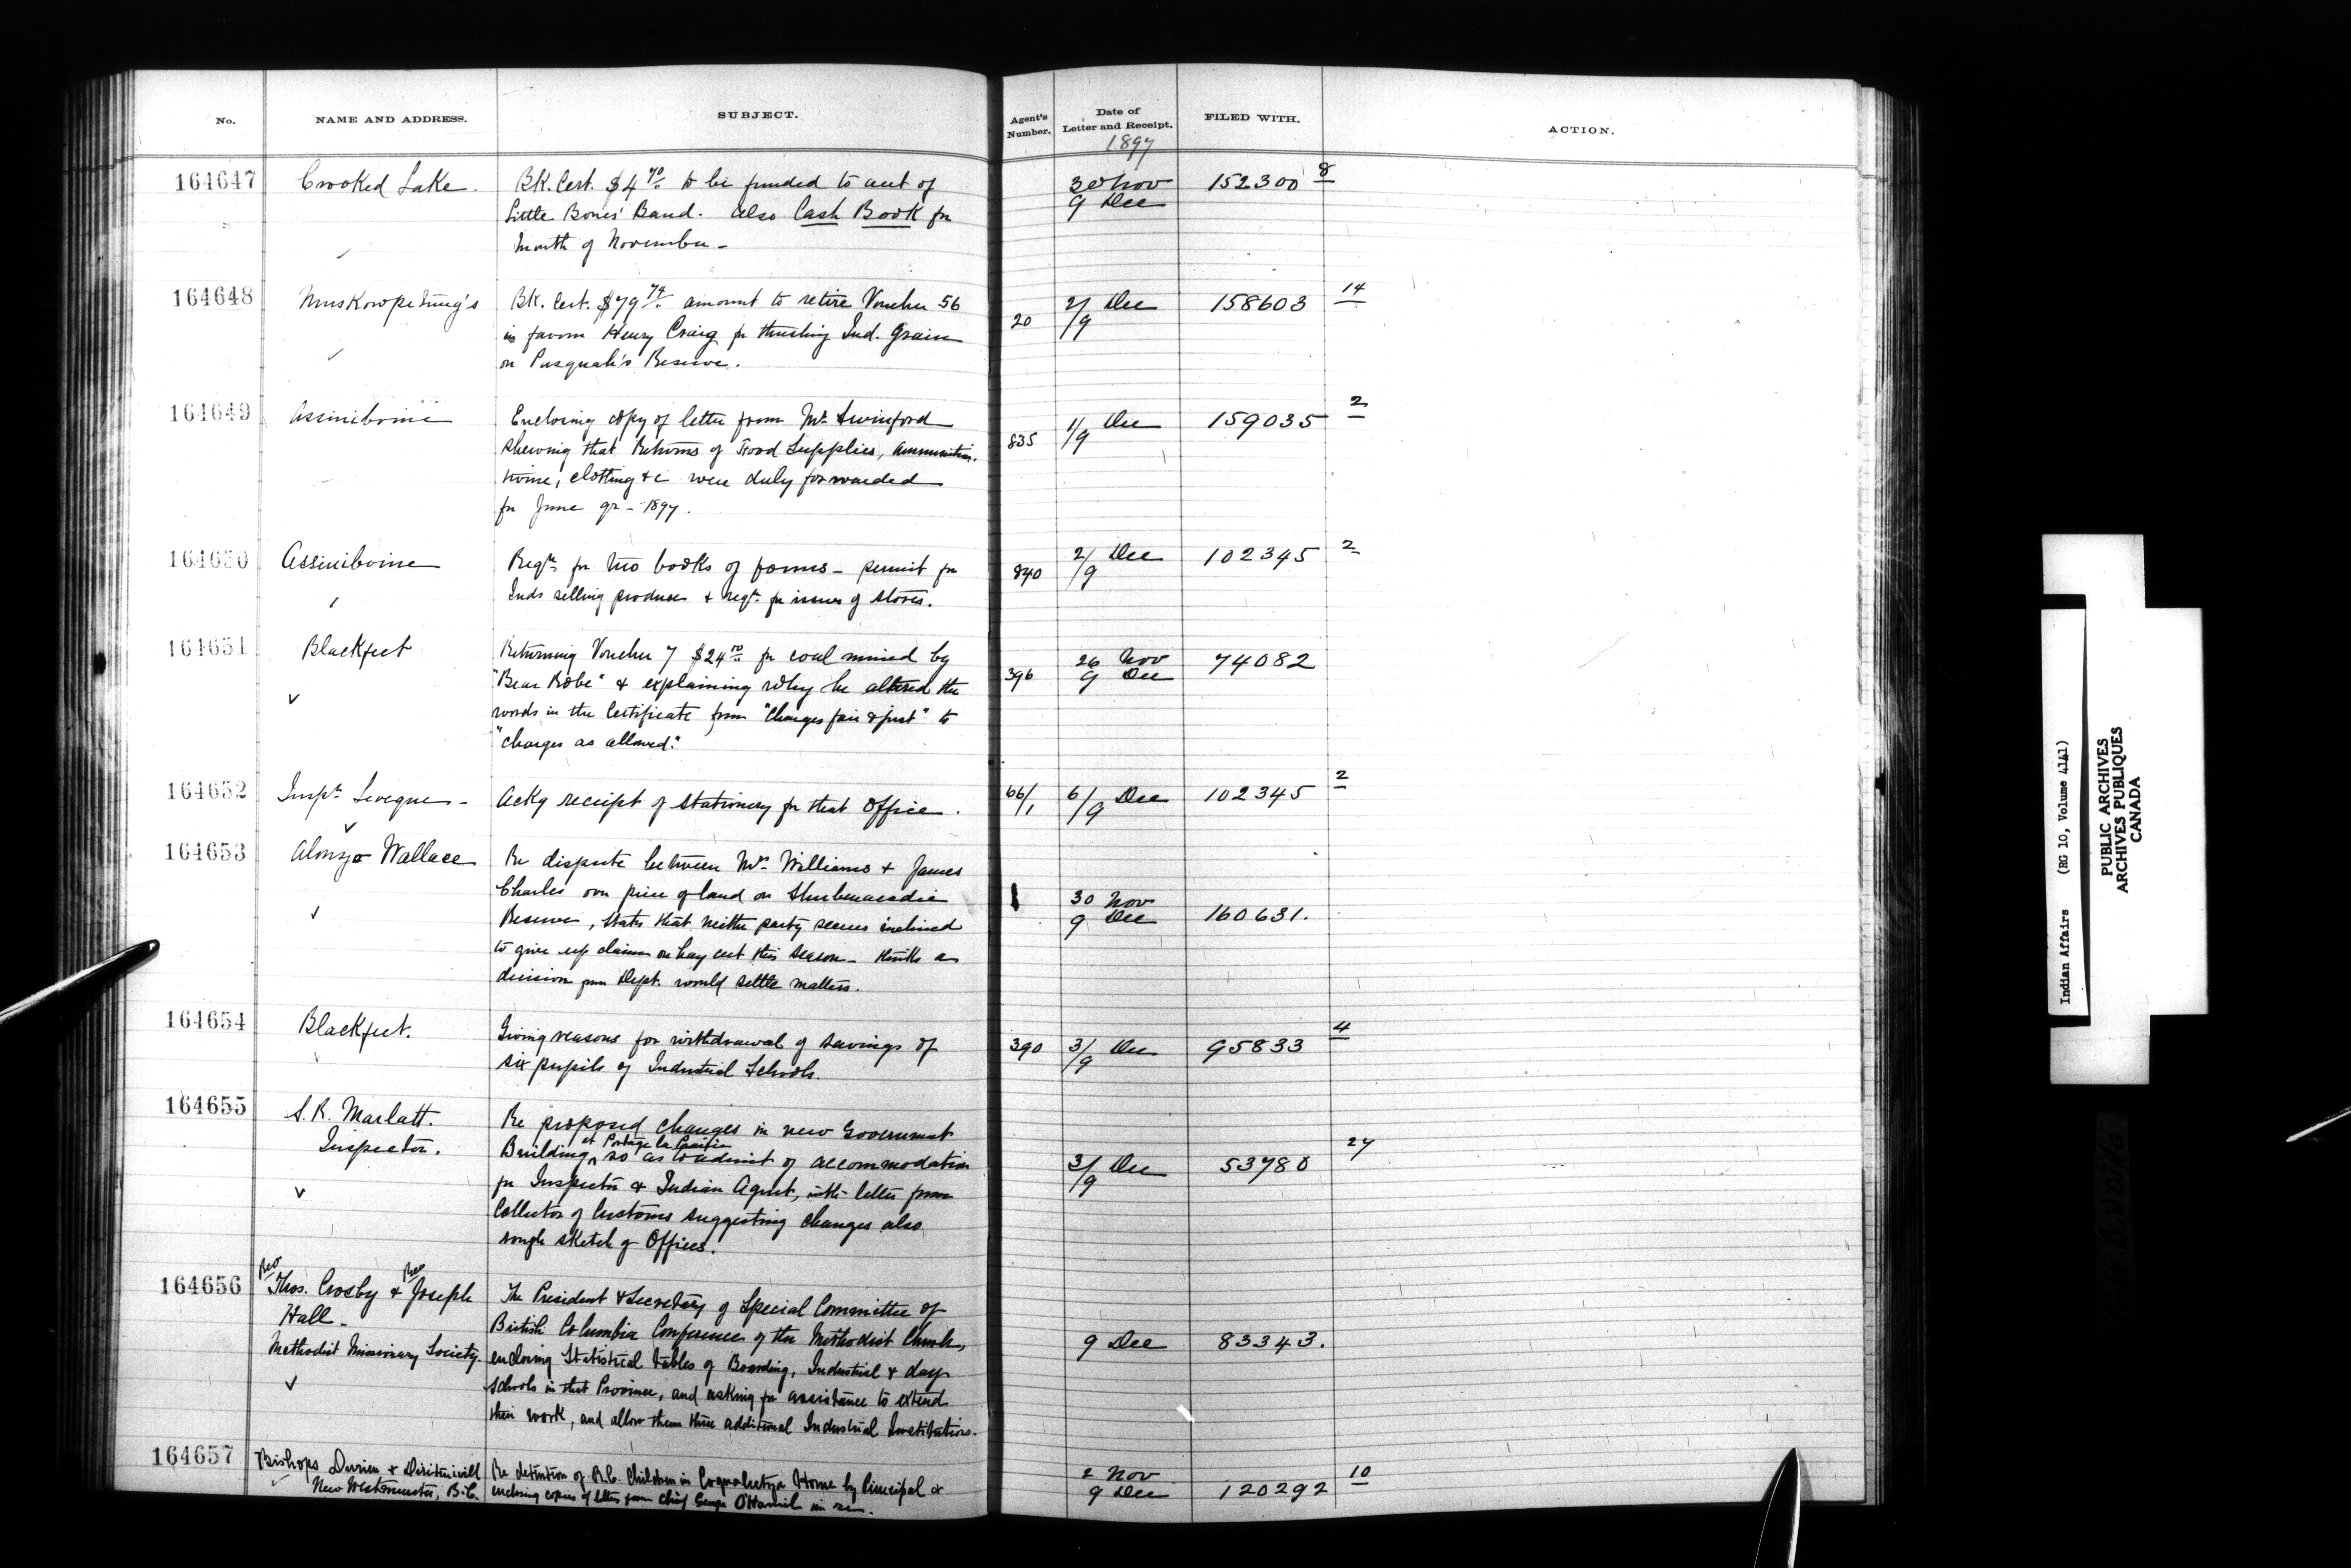 No. NAME AND ADDRESS. SUBJECT. Agent's Number. Date of Letter and Receipt. FILED WITH. ACTION.
1897
164647 Crooked Lake. BK. Cert. $4 70 to be funded to acct of 30 Nov 152300 8
Little Bones' Band. Also Cash Book for 9 Dec
Month of November -
164648 Muskowpetung's BK. Cert. $79 74 amount to retire Voucher 56 20 2/9 Dec 158603 14
in favour Henry Craig for thrashing Ind. Grain
on Pasquah's Reserve.
164649 Assiniboine Enclosing copy of letter from Mr. Swinford 835 1/9 Dec 159035 2
shewing that Returns of Food Supplies, ammunition.
twine, clothing &c were duly forwarded
for June qr - 1897.
164650 Assiniboine Reqn. for two books of forms - permit for 840 2/9 Dec 102345 2
Inds selling produce & reqn. for issues of stores.
164651 Blackfeet Returning Voucher 7 $24 for coal mined by 396 26 Nov 74082
"Bear Robe" & explaining why he altered the 9 Dec
words in the Certificate from "Charges fair & just" to
"Charges as allowed."
164652 Inspr. Leveque - Ackg receipt of stationery for that Office. 66/1 6/9 Dec 102345 2
164653 Alonzo Wallace Re dispute between Mrs. Williams & James
Charles over piece of land on Shubenacadie 30 Nov
Reserve, states that neither party seems inclined 9 Dec 160631.
to give up claim on hay cut this season - thinks a
decision from Dept. would settle matters.
164654 Blackfeet. Giving reasons for withdrawal of savings of 390 3/9 Dec 95833 4
six pupils of Industrial Schools.
164655 S. R. Marlatt. Re proposed changes in new Government
Inspector. Building at Portage la Prairie so as to admit of accommodation 3/9 Dec 53780 27
for Inspector & Indian Agent, with letter from
Collector of Customs suggesting changes also
rough sketch of Offices.
164656 Rev Thos. Crosby & Rev Joseph The President & Secretary of Special Committee of
Hall - British Columbia Conference of the Methodist Church, 9 Dec 83343.
Methodist Missionary Society. enclosing Statistical tables of Boarding, Industrial & day
schools in that Province, and asking for assistance to extend
their work, and allow them three additional Industrial Institutions.
164657 Bishops Durieu & Re detention of R.C. Children in Coqualeetza Home by Principal & 2 Nov 120292 10
New Westminster, B.C. enclosing copies of letters from Chief George in re. 9 Dec
Indian Affairs (RG 10, Volume 4141)
PUBLIC ARCHIVES
ARCHIVES PUBLIQUES
CANADA